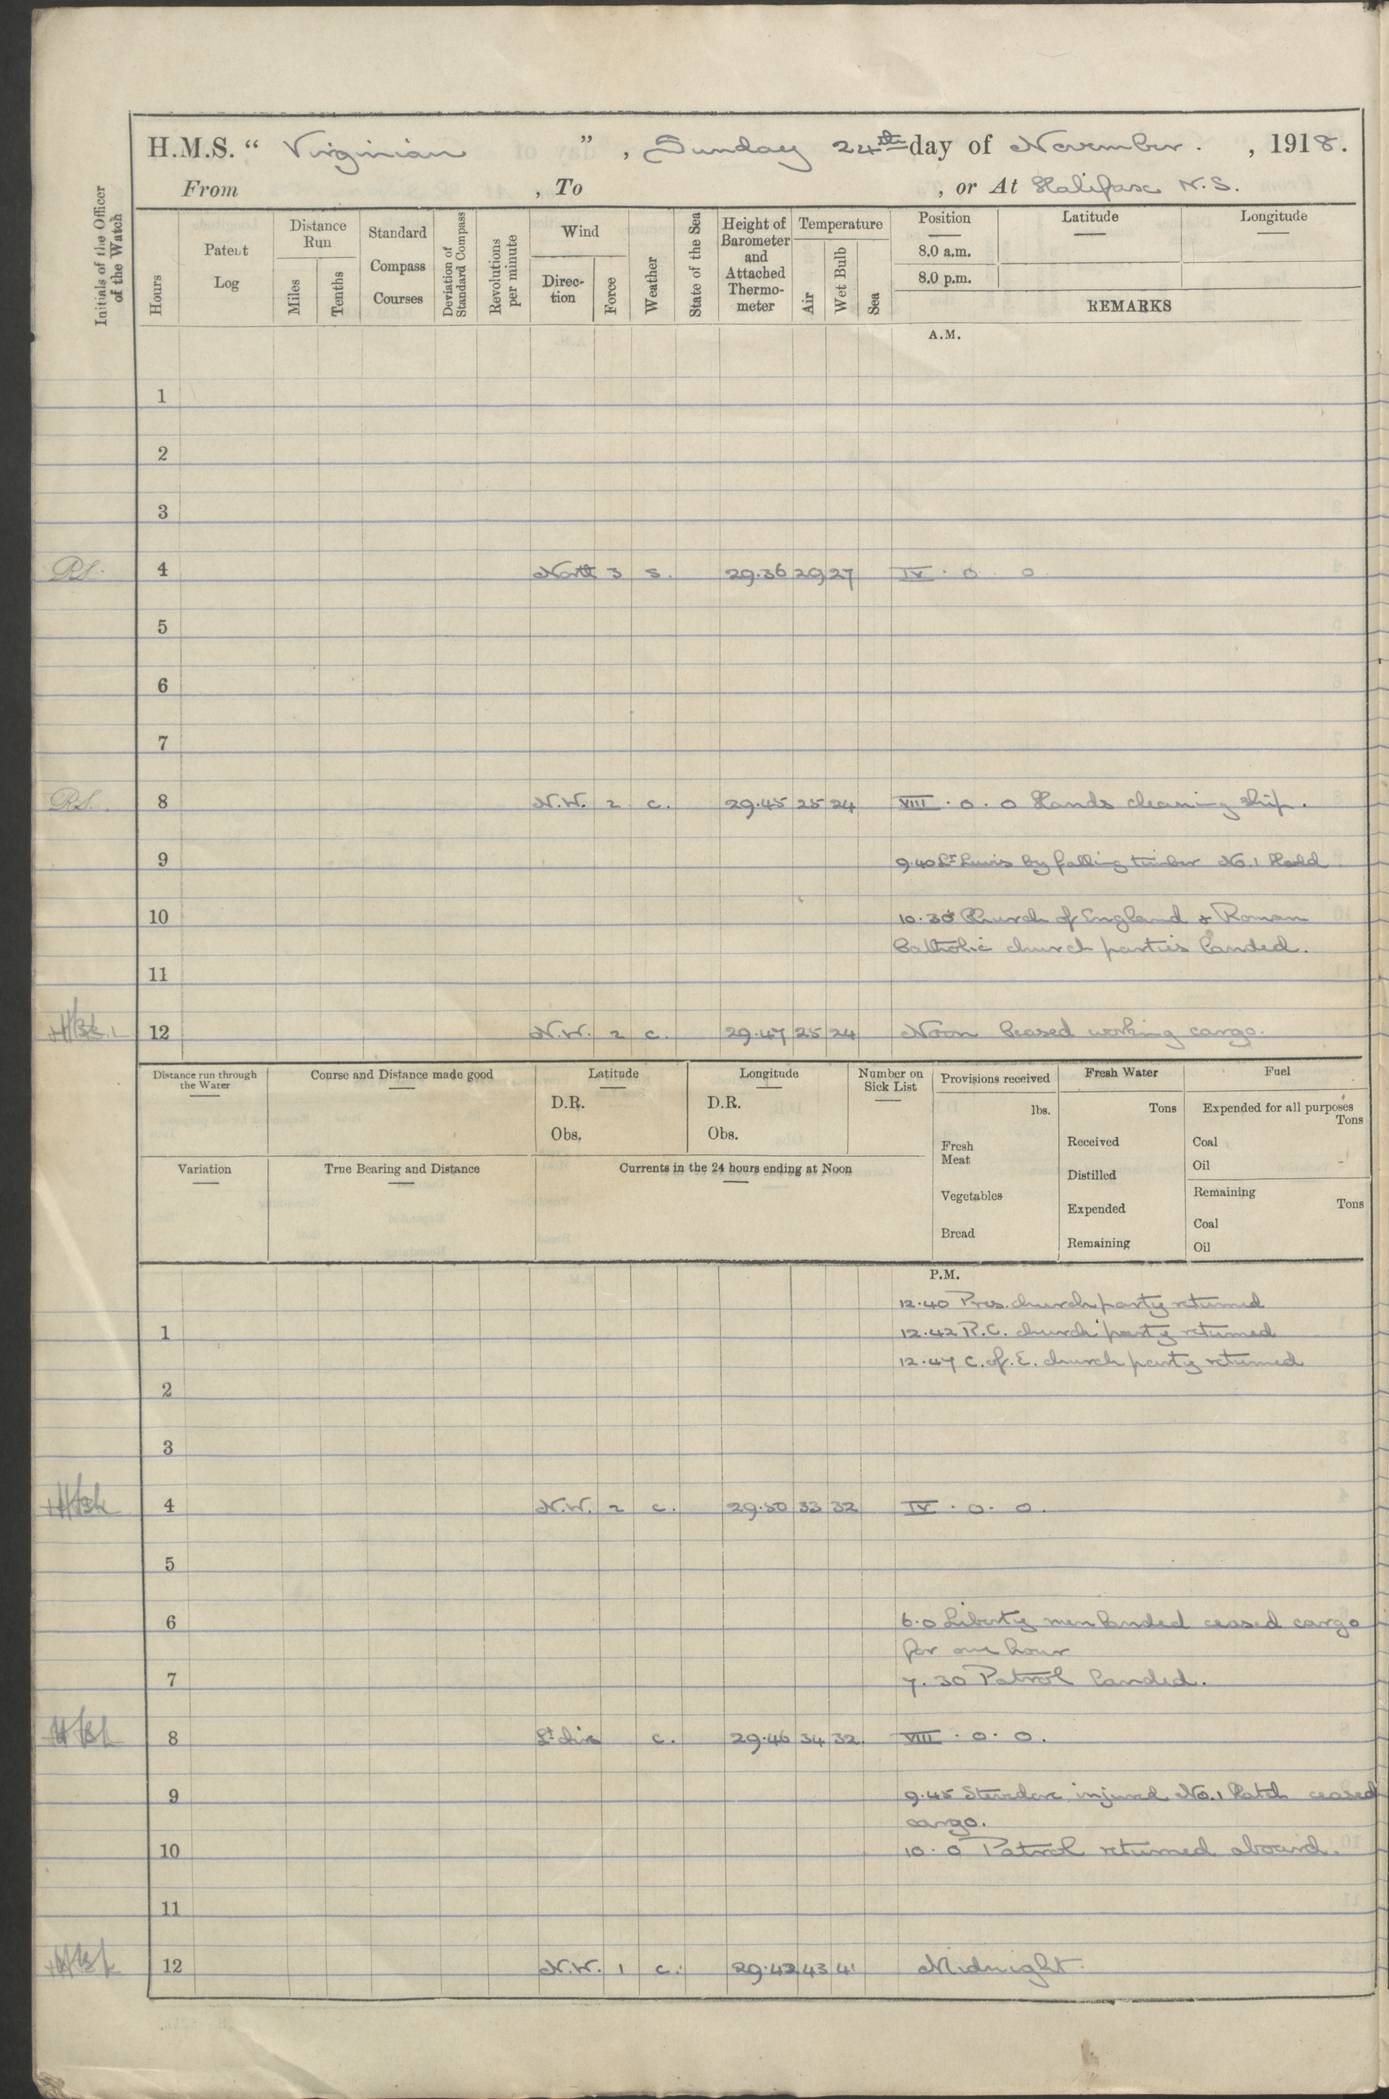 H.M.S. “ Virginian ” , Sunday 24th day of November. , 1918.
From , To , or At Halifax N.S.
Initials of the Officer of the Watch
Hours
Patent Log
Distance Run
Miles
Tenths
Standard Compass Courses
Deviation of Standard Compass
Revolutions per minute
Wind
Direction
Force
Weather
State of the Sea
Height of Barometer and Attached Thermometer
Temperature
Air
Wet Bulb
Sea
Position Latitude Longitude
8.0 a.m.
8.0 p.m.
REMARKS
A.M.
1
2
3
4 North 3 s. 29.36 29 27 IV . 0 0
5
6
7
8 N.W. 2 c. 29.45 25 24 VIII . 0 . 0 Hands cleaning ship.
9 9.40 Lt Lewis by falling timber No.1 Hold
10 10.30 Church of England & Roman
Catholic church parties landed.
11
12 N.W. 2 c. 29.47 25 24 Noon Ceased working cargo.
Distance run through the Water
Course and Distance made good
Latitude
D.R.
Obs.
Longitude
D.R.
Obs.
Number on Sick List
Provisions received
lbs.
Fresh Meat
Vegetables
Bread
Fresh Water
Tons
Received
Distilled
Expended
Remaining
Fuel
Expended for all purposes
Tons
Coal
Oil
Remaining
Tons
Coal
Oil
Variation
True Bearing and Distance
Currents in the 24 hours ending at Noon
P.M.
12.40 Pres. church party returned
1 12.42 R.C. church party returned
12.47 C. of. E. church party returned
2
3
4 N.W. 2 c. 29.50 33 32 IV . 0 . 0.
5
6 6.0 Liberty men landed ceased cargo
for one hour
7 7.30 Patrol landed.
8 Lt Airs c. 29.46 34 32 VIII . 0 . 0.
9 9.45 Stevedore injured No.1 Hatch ceased
cargo.
10 10.0 Patrol returned aboard.
11
12 N.W. 1 c. 29.42 43 41 Midnight.